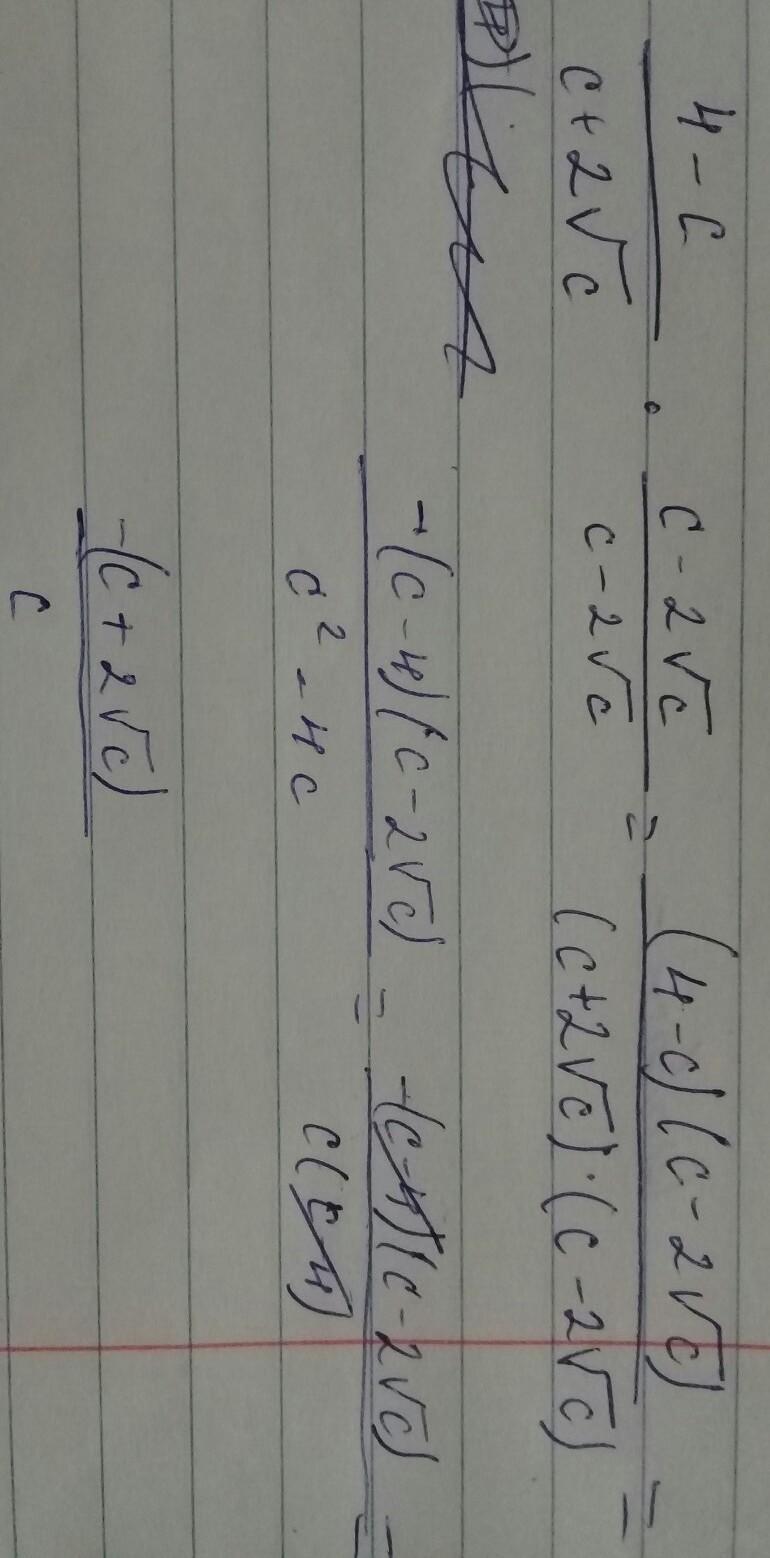 4-c/c+2√c · c-2√c/c-2√c = (4-c)(c-2√c)/(c+2√c)·(c-2√c) =
-(c-4)(c-2√c)/c²-4c = -(c-4)(c-2√c)/c(c-4) =
-(c+2√c)/c